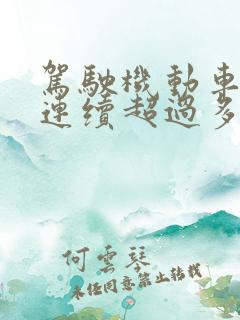 駕駛機動車
連續超過多
何雲琴
未經同意禁止轉載